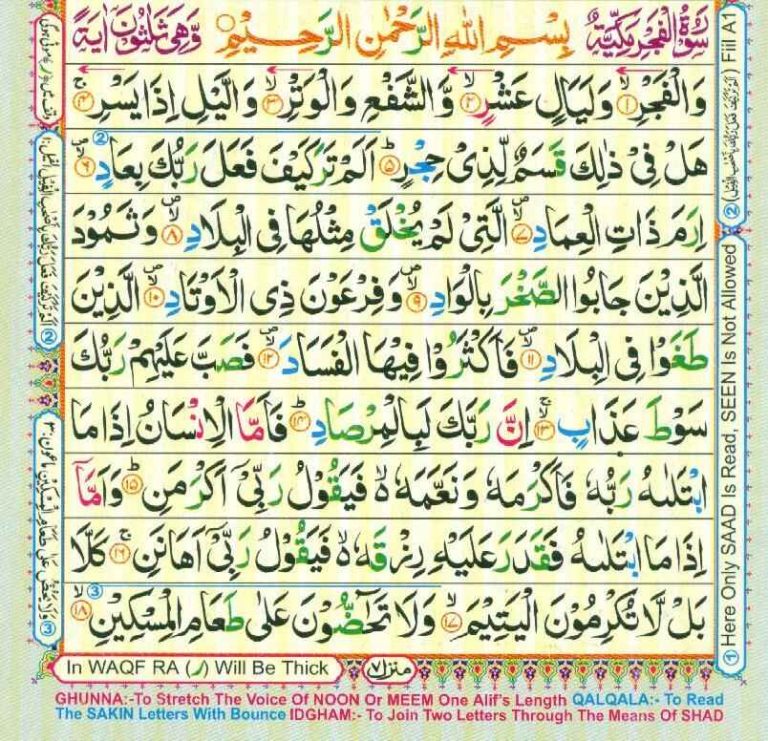 سُوْرَةُ الْفَجْرِ مَكِّيَّةٌ بِسْمِ اللهِ الرَّحْمٰنِ الرَّحِيْمِ وَهِىَ ثَلٰثُوْنَ اٰيَةً
وَالْفَجْرِ ۙ﴿۱﴾ وَلَيَالٍ عَشْرٍ ۙ﴿۲﴾ وَّالشَّفْعِ وَالْوَتْرِ ۙ﴿۳﴾ وَالَّيْلِ اِذَا يَسْرِ ۚ﴿۴﴾
هَلْ فِىْ ذٰلِكَ قَسَمٌ لِّذِىْ حِجْرٍ ؕ﴿۵﴾ اَلَمْ تَرَ كَيْفَ فَعَلَ رَبُّكَ بِعَادٍ ﴿۶﴾ ②
اِرَمَ ذَاتِ الْعِمَادِ ﴿۷﴾ الَّتِىْ لَمْ يُخْلَقْ مِثْلُهَا فِى الْبِلَادِ ﴿۸﴾ وَثَمُوْدَ
الَّذِيْنَ جَابُوا الصَّخْرَ بِالْوَادِ ﴿۹﴾ وَفِرْعَوْنَ ذِى الْاَوْتَادِ ﴿۱۰﴾ الَّذِيْنَ
طَغَوْا فِى الْبِلَادِ ﴿۱۱﴾ فَاَكْثَرُوْا فِيْهَا الْفَسَادَ ﴿۱۲﴾ فَصَبَّ عَلَيْهِمْ رَبُّكَ
سَوْطَ عَذَابٍ ﴿۱۳﴾ اِنَّ رَبَّكَ لَبِالْمِرْصَادِ ؕ﴿۱۴﴾ فَاَمَّا الْاِنْسَانُ اِذَا مَا
ابْتَلٰىهُ رَبُّهٗ فَاَكْرَمَهٗ وَنَعَّمَهٗ ۙ فَيَقُوْلُ رَبِّىْٓ اَكْرَمَنِ ؕ﴿۱۵﴾ وَاَمَّاۤ
اِذَا مَا ابْتَلٰىهُ فَقَدَرَ عَلَيْهِ رِزْقَهٗ ۙ فَيَقُوْلُ رَبِّىْٓ اَهَانَنِ ۚ﴿۱۶﴾ كَلَّا
بَلْ لَّا تُكْرِمُوْنَ الْيَتِيْمَ ۙ﴿۱۷﴾ وَلَا تَحٰٓضُّوْنَ عَلٰى طَعَامِ الْمِسْكِيْنِ ۙ﴿۱۸﴾ ③
① Here Only SAAD Is Read, SEEN Is Not Allowed
② (اَلَمْ تَرَ كَيْفَ فَعَلَ رَبُّكَ بِاَصْحٰبِ الْفِيْلِ) Fiil A1
اَلَمْ تَرَ كَيْفَ فَعَلَ رَبُّكَ بِاَصْحٰبِ الْفِيْلِ ②
وَلَا يَحُضُّ عَلٰى طَعَامِ الْمِسْكِيْنِ ماعون:۳ ③
In WAQF RA (ر) Will Be Thick
منزل۷
GHUNNA:-To Stretch The Voice Of NOON Or MEEM One Alif's Length QALQALA:- To Read
The SAKIN Letters With Bounce IDGHAM:- To Join Two Letters Through The Means Of SHAD